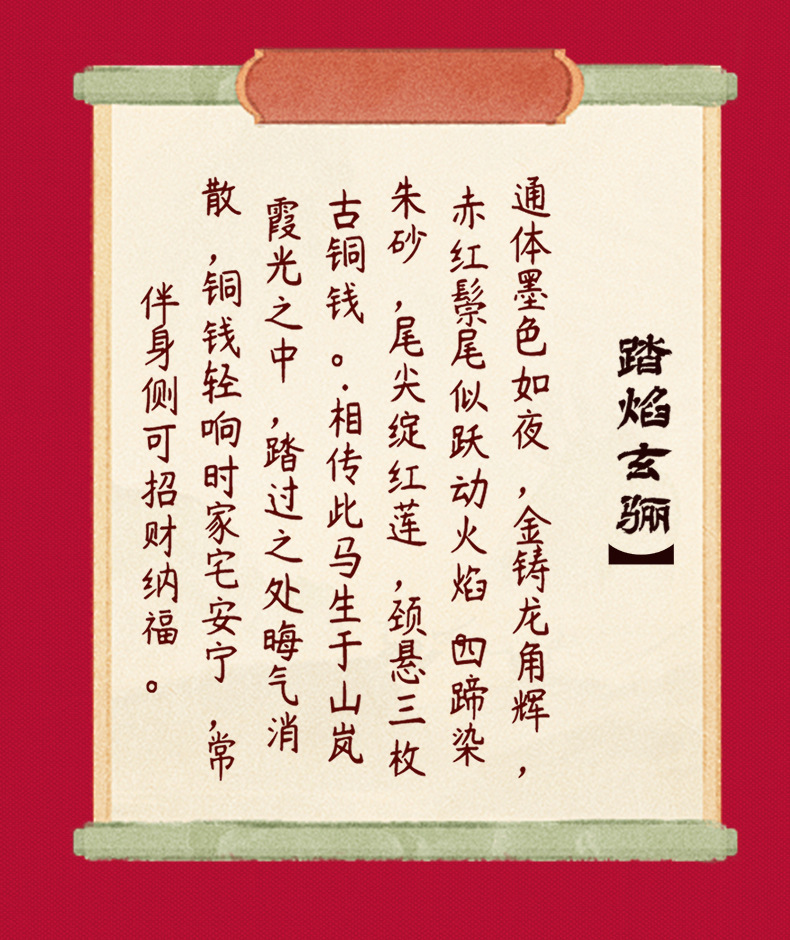 踏焰玄骊】
通体墨色如夜，金铸龙角辉，
赤红鬃尾似跃动火焰 四蹄染
朱砂，尾尖绽红莲，颈悬三枚
古铜钱。·相传此马生于山岚
霞光之中，踏过之处晦气消
散，铜钱轻响时家宅安宁，常
伴身侧可招财纳福。